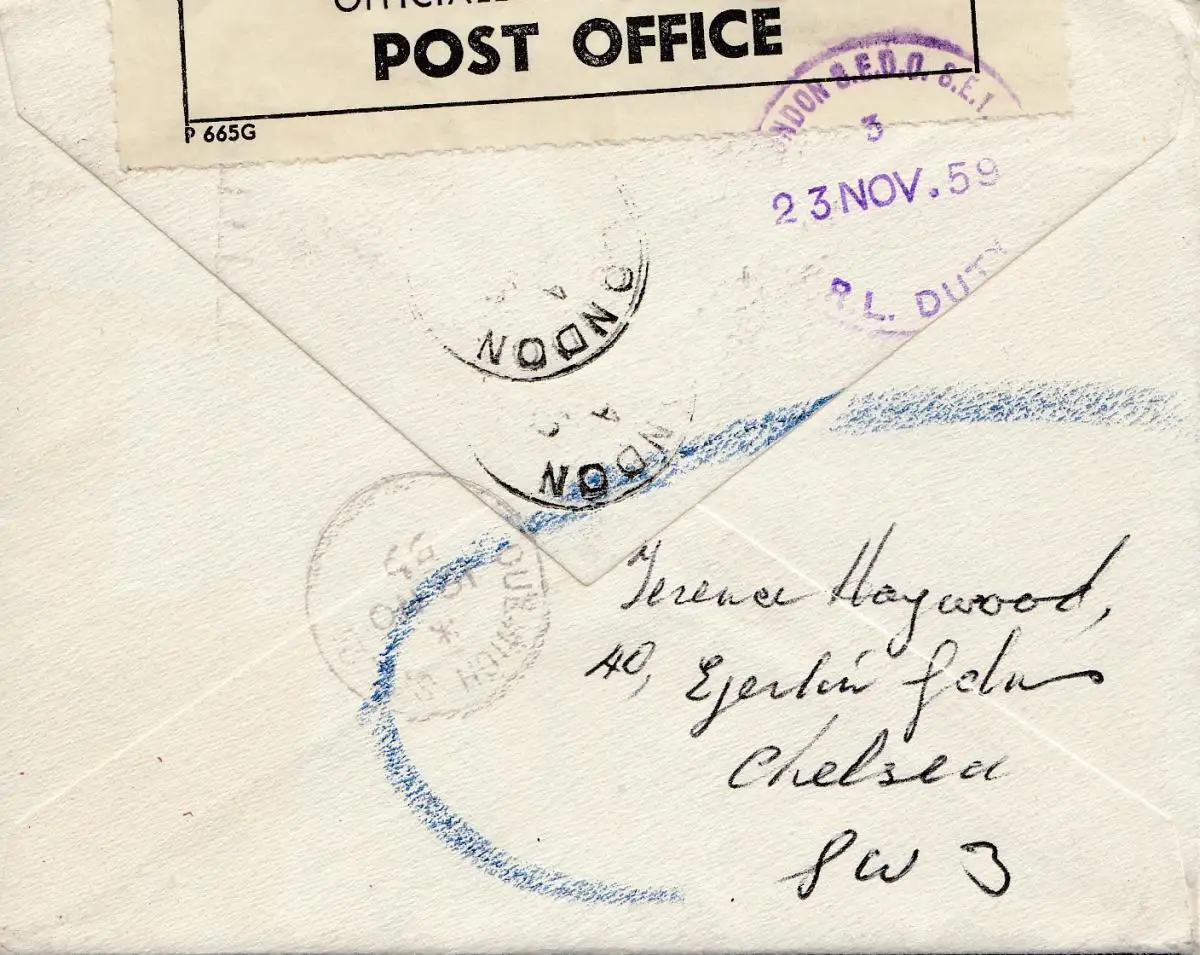 POST OFFICE
P 665G
LONDON S.E.D.O. S.E.1
3
23 NOV. 59
R.L. DUTY
LONDON
LONDON
Terence Haywood,
40, Egerton Gdns
Chelsea
SW 3